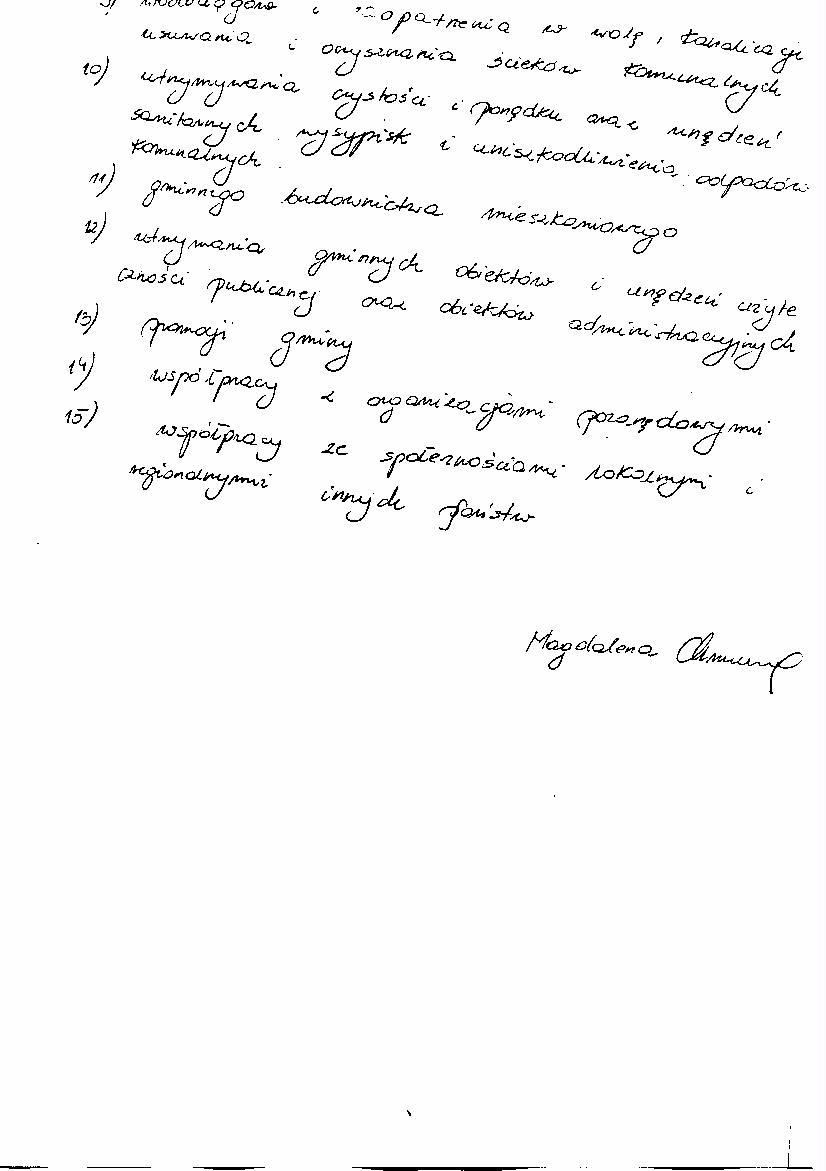 9) wodociągów i zaopatrzenia w wodę, kanalizacji
usuwania i oczyszczania ścieków komunalnych
10) utrzymywania czystości i porządku oraz urządzeń
sanitarnych wysypisk i unieszkodliwienia odpadów
komunalnych.
11) gminnego budownictwa mieszkaniowego
12) utrzymania gminnych obiektów i urządzeń użyte
czności publicznej oraz obiektów administracyjnych
13) promocji gminy
14) współpracy z organizacjami pozarządowymi
15) współpracy ze społecznościami lokalnymi i
regionalnymi innych państw
Magdalena